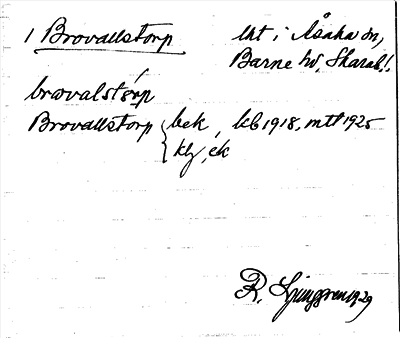 1 Brovallstorp
lht i Åsaka sn,
Barne hd. Skarab.!.
brovalstórp
Brovallstorp { bek, kb 1918, mtl 1925
klj, ek
R. Ljunggren 1929